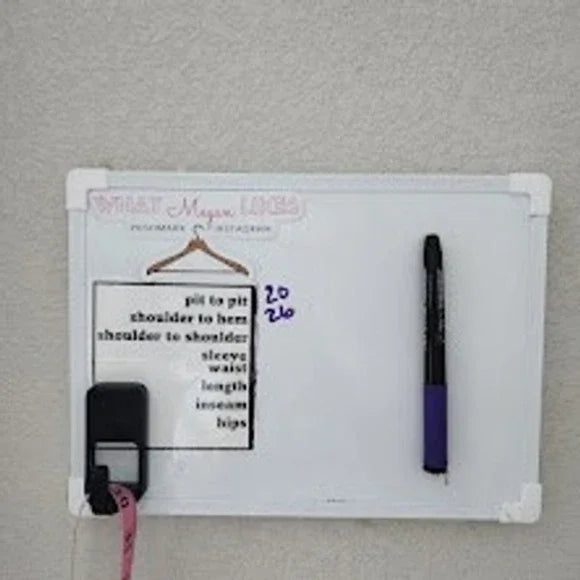 WHAT Megan LIKES
POSHMARK INSTAGRAM
pit to pit 20
shoulder to hem 26
shoulder to shoulder
sleeve
waist
length
inseam
hips